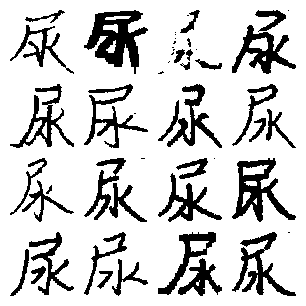 尿尿尿尿
尿尿尿尿
尿尿尿尿
尿尿尿尿